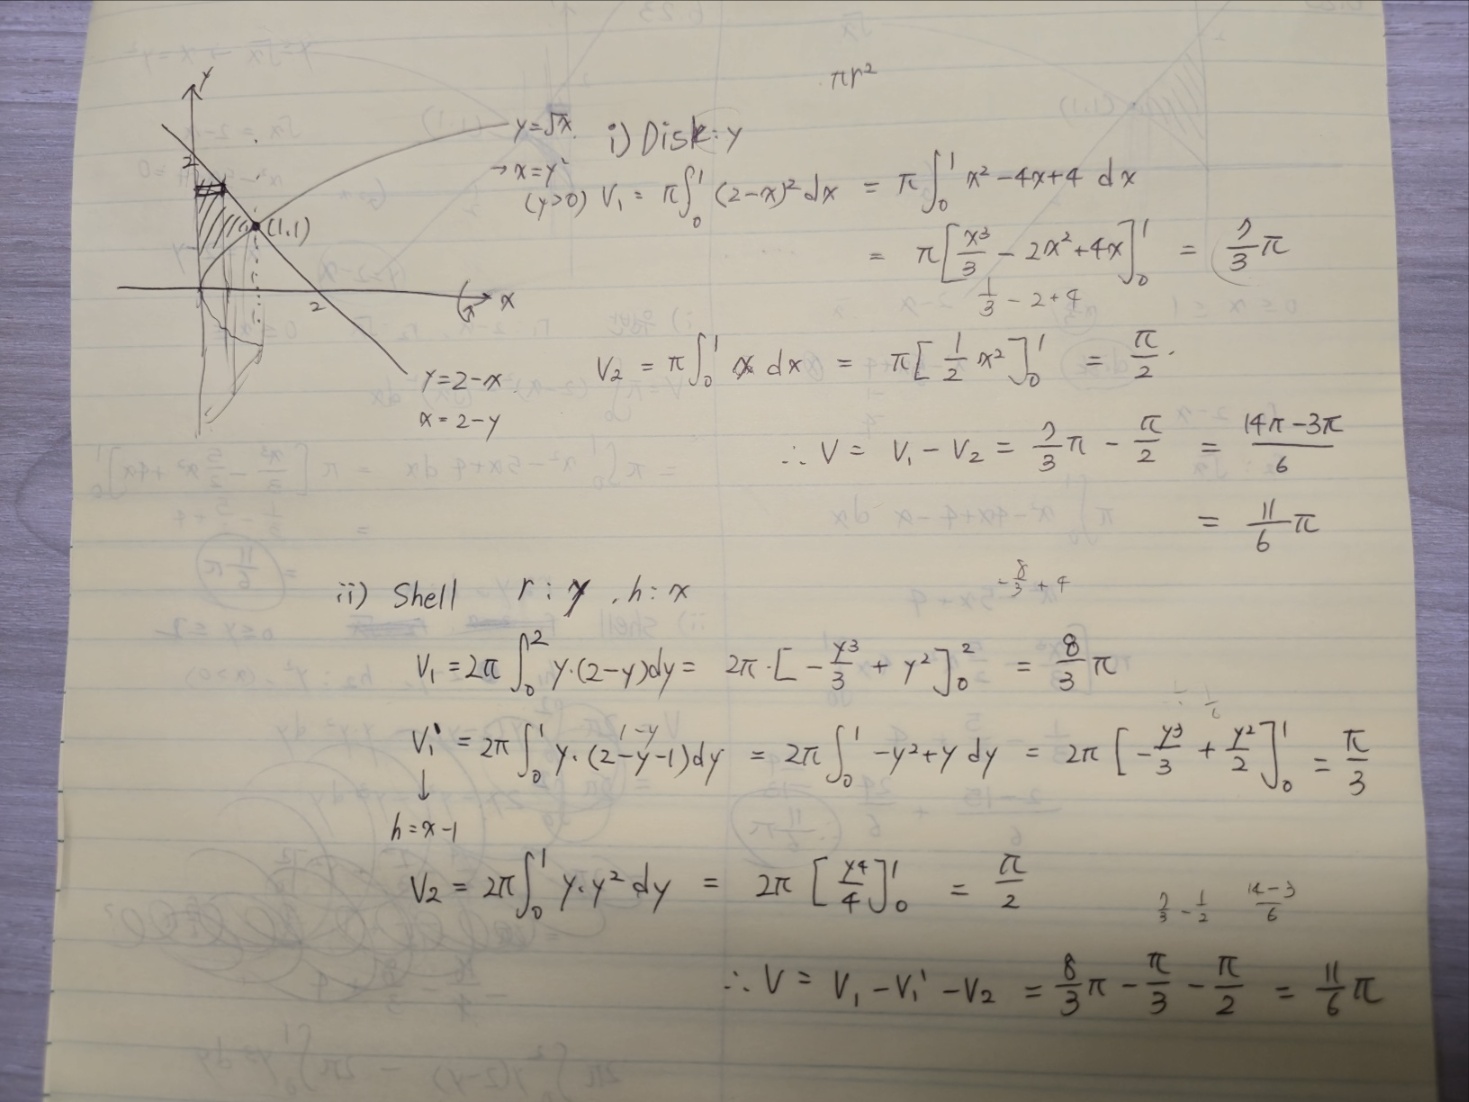 πr²
y
y=√x
→ x=y²
(y>0)
2
(1,1)
2
x
π
y=2-x
x=2-y
i) Disk: y
V₁ = π∫₀¹ (2-x)² dx = π∫₀¹ x² - 4x + 4 dx
= π[x³/3 - 2x² + 4x]₀¹ = 7/3 π
1/3 - 2 + 4
V₂ = π∫₀¹ x dx = π[1/2 x²]₀¹ = π/2
∴ V = V₁ - V₂ = 7/3 π - π/2 = (14π-3π)/6
= 11/6 π
-8/3 + 4
ii) Shell r: y, h: x
V₁ = 2π∫₀² y·(2-y)dy = 2π·[-y³/3 + y²]₀² = 8/3 π
1-y
V₁' = 2π∫₀¹ y·(2-y-1)dy = 2π∫₀¹ -y²+y dy = 2π[-y³/3 + y²/2]₀¹ = π/3
↓
h=x-1
V₂ = 2π∫₀¹ y·y² dy = 2π[y⁴/4]₀¹ = π/2
7/3 - 1/2 (14-3)/6
∴ V = V₁ - V₁' - V₂ = 8/3 π - π/3 - π/2 = 11/6 π